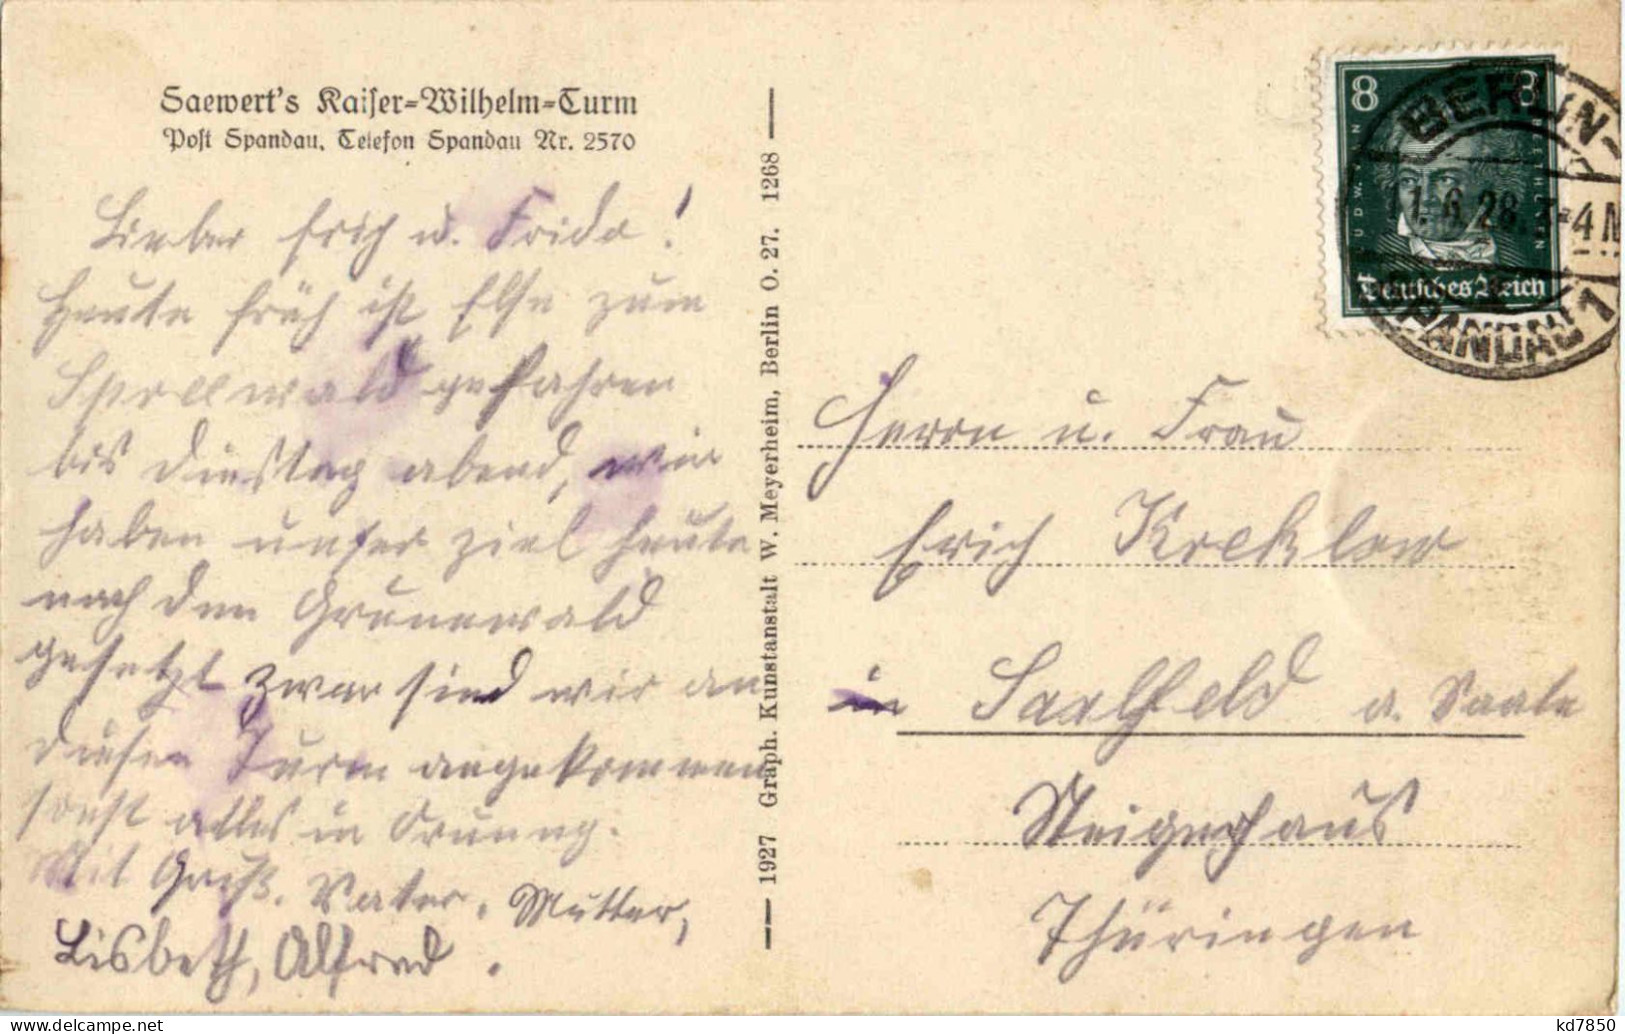 Saewert's Kaiser-Wilhelm-Turm
Post Spandau, Telefon Spandau Nr. 2570
Lieber Erich u. Frida!
Heute früh ist Else zum
Spreewald gefahren
bis Dienstag abend, wir
haben unser Ziel heute
nach dem Grunewald
gesetzt zwar sind wir an
diesen Turm angekommen
sonst alles in Ordnung.
Mit Gruß. Vater, Mutter,
Lisbeth, Alfred.
1927 Graph. Kunstanstalt W. Meyerheim, Berlin O. 27. 1268
8 8
LUDW. V. BEETHOVEN
Deutsches Reich
BERLIN-
11.6.28. 3-4 N
SPANDAU 1
Herrn u. Frau
Erich Kreklow
in Saalfeld a. Saale
Steigerhaus
Thüringen
kd7850